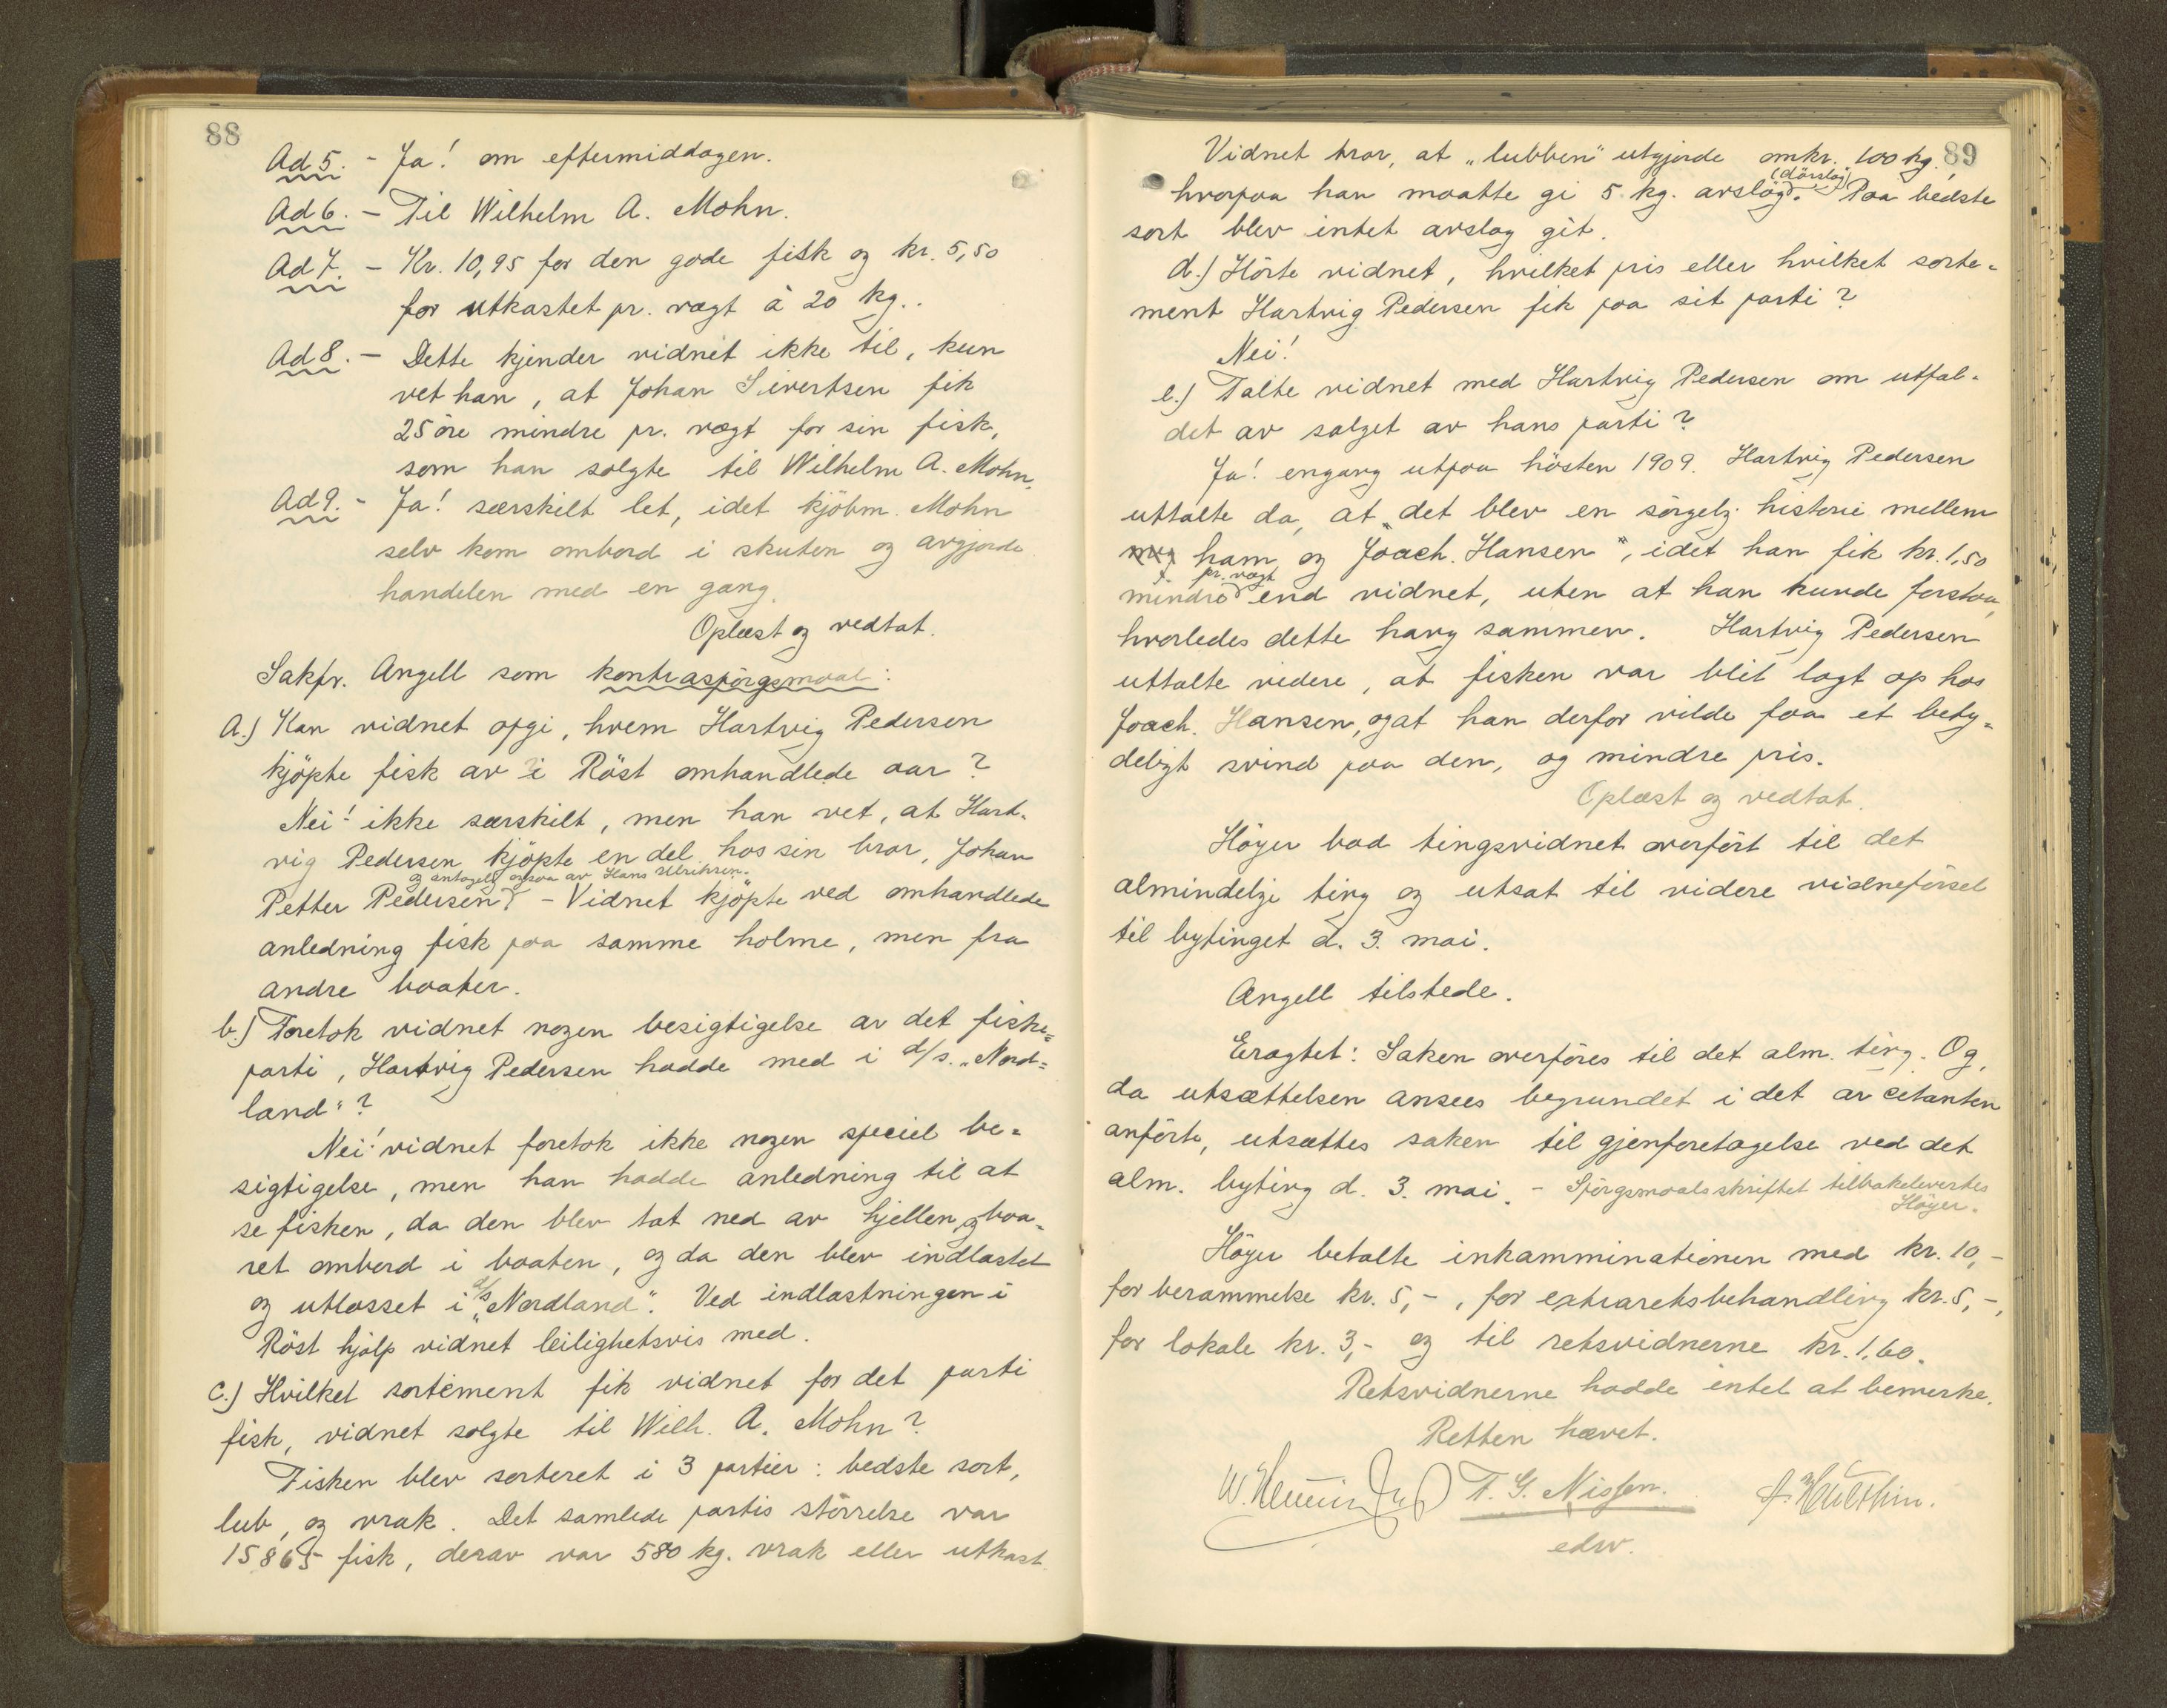 88
Ad 5. - Ja! om eftermiddagen.
Ad 6. - Til Wilhelm A. Mohn.
Ad 7. - Kr. 10,95 for den gode fisk og kr. 5,50
for utkastet pr. vægt à 20 kg..
Ad 8. - Dette kjender vidnet ikke til, kun
vet han, at Johan Sivertsen fik
25 øre mindre pr. vægt for sin fisk,
som han solgte til Wilhelm A. Mohn.
Ad 9. - Ja! særskilt let, idet kjøbm. Mohn
selv kom ombord i skuten og avgjorde
handelen med en gang.
Oplæst og vedtat.
Sakfr. Angell som kontraspörgsmaal:
a.) Kan vidnet opgi, hvem Hartvig Pedersen
kjöpte fisk av i Röst omhandlede aar?
Nei! ikke særskilt, men han vet, at Hart-
vig Pedersen kjöpte en del hos sin bror, Johan
og antagelig ogsaa av Hans Ulriksen.
Petter Pedersen - Vidnet kjöpte ved omhandlede
anledning fisk paa samme holme, men fra
andre baater.
b.) Foretok vidnet nogen besigtigelse av det fiske=
parti, Hartvig Pedersen hadde med i d/s. „Nord=
land"?
Nei! vidnet foretok ikke nogen speciel be=
sigtigelse, men han hadde anledning til at
se fisken, da den blev tat ned av hjellen, og baa-
ret ombord i baaten, og da den blev indlastet
og utlosset i d/s „Nordland". Ved indlastningen i
Röst hjalp vidnet leilighetsvis med.
c.) Hvilket sortement fik vidnet for det parti
fisk, vidnet solgte til Wilh. A. Mohn?
Fisken blev sorteret i 3 partier: bedste sort,
lub, og vrak. Det samlede partis störrelse var
15865 fisk, derav var 580 kg. vrak eller utkast.
89
Vidnet tror, at „lubben" utgjorde omkr. 100 kg.,
(dörslag)
hvorpaa han maatte gi 5 kg. avslag. Paa bedste
sort blev intet avslag git.
d.) Hörte vidnet, hvilket pris eller hvilket sorte=
ment Hartvig Pedersen fik paa sit parti?
Nei!
e.) Talte vidnet med Hartvig Pedersen om utfal-
det av salget av hans parti?
Ja! engang utpaa hösten 1909. Hartvig Pedersen
uttalte da, at „det blev en sörgelig historie mellem
mig ham og Joach. Hansen", idet han fik kr. 1,50
pr. vægt
mindre end vidnet, uten at han kunde forstaa,
hvorledes dette hang sammen. Hartvig Pedersen
uttalte videre, at fisken var blit lagt op hos
Joach. Hansen, og at han derfor vilde faa et bety=
deligt svind paa den, og mindre pris.
Oplæst og vedtat.
Höyer bad tingsvidnet overfört til det
almindelige ting og utsat til videre vidneförsel
til bytinget d. 3. mai.
Angell tilstede.
Eragtet: Saken overföres til det alm. ting. Og,
da utsættelsen ansees begrundet i det av citanten
anförte, utsættes saken til gjenforetagelse ved det
alm. byting d. 3. mai. - Spörgsmaalsskriftet tilbakelevertes
Höyer.
Höyer betalte inkamminationen med kr. 10,-
for berammelse kr. 5,-, for extraretsbehandling kr. 5,-,
for lokale kr. 3,- og til retsvidnerne kr. 1,60.
Retsvidnerne hadde intet at bemerke.
Retten hævet.
T. G. Nissen.
edsv.